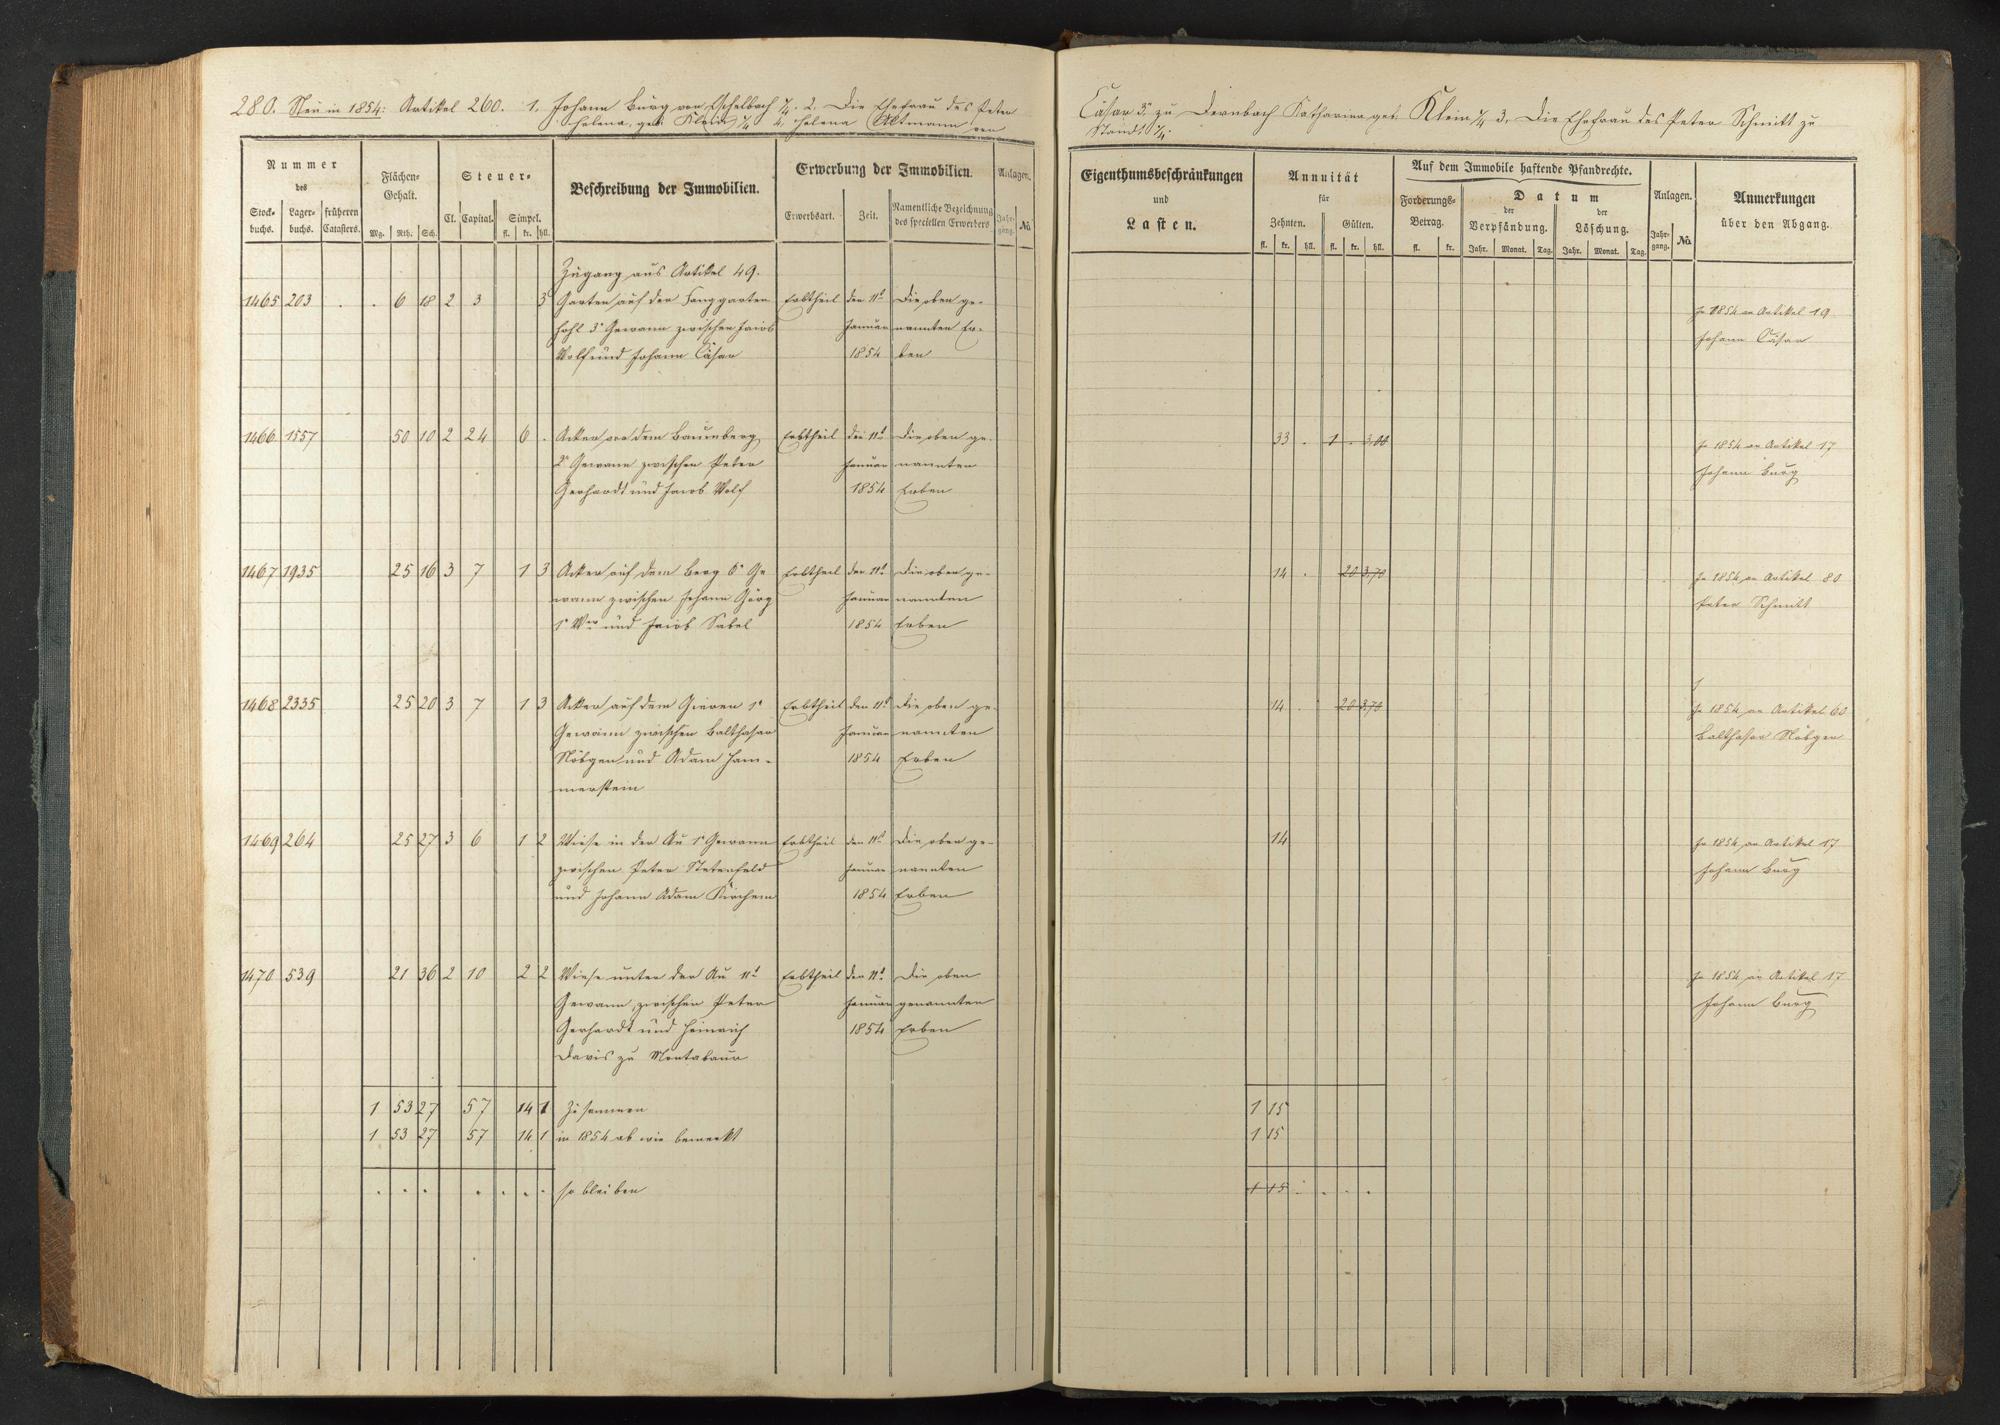 280. Neu in 1854: Artikel 260. 1, Johann Burg von Eschelbach 1/4. 2, Die Ehefrau des Peter
Helena, geb: Klein 1/4 4, Helena Altmann von
Cäsar 3r zu Dernbach Katharina geb. Klein 1/4 3, Die Ehefrau des Peter Schmitt zu
Standt 1/4.
Nummer
des
Stock-
buchs.
Lager-
buchs.
früheren
Catasters.
Flächen-
Gehalt.
Mg. Rth. Sch.
Steuer-
Cl. Capital. Simpel.
fl. kr. hll.
Beschreibung der Immobilien.
Erwerbung der Immobilien.
Erwerbsart. Zeit. Namentliche Bezeichnung
des speciellen Erwerbers
Anlagen.
Jahr-
gang. No.
Eigenthumsbeschränkungen
und
Lasten.
Annuität
für
Zehnten. Gülten.
fl. kr. hll. fl. kr. hll.
Auf dem Immobile haftende Pfandrechte.
Forderungs-
Betrag.
fl. kr.
Datum
der
Verpfändung.
der
Löschung.
Jahr. Monat. Tag. Jahr. Monat. Tag.
Anlagen.
Jahr-
gang. No.
Anmerkungen
über den Abgang.
Zugang aus Artikel 49.
1465 203 . . 6 18 2 3 3 Garten auf der Langgarten Erbtheil den 11t Die oben ge-
hohl 3r Gewann zwischen Jacob Januar nannten Er-
Wolf und Johann Cäsar 1854 ben
In 1854 an Artikel 19
Johann Cäsar
1466 1557 50 10 2 24 6 . Acker vor dem Baumberg Erbtheil den 11t Die oben ge- 33 . 1 . 3,00
2r Gewann zwischen Peter Januar nannten
Gerhardt und Jacob Wolf 1854 Erben
In 1854 an Artikel 17
Johann Burg
1467 1935 25 16 3 7 1 3 Acker auf dem Berg 6r Ge Erbtheil den 11t Die oben ge- 14 . 20 3,70
wann zwischen Johann Görg Januar nannten
1r Wer und Jacob Sabel 1854 Erben
In 1854 an Artikel 80
Peter Schmitt
1468 2335 25 20 3 7 1 3 Acker auf dem Gieren 1r Erbtheil den 11t Die oben ge- 14 . . 20 3,70
Gewann zwischen Balthasar Januar nannten
Nöbgen und Adam Ham- 1854 Erben
merstein
In 1854 an Artikel 60
Balthasar Nöbgen
1469 264 25 27 3 6 1 2 Wiese in der Au 1r Gewann Erbtheil den 11t Die oben ge- 14
zwischen Peter Januar nannten
und Johann Adam Kirchem 1854 Erben
In 1854 an Artikel 17
Johann Burg
1470 539 21 36 2 10 2 2 Wiese unter der Au 11t Erbtheil den 11t Die oben
Gewann, zwischen Peter Januar genannten
Gerhardt und Heinrich 1854 Erben
Davis zu Montabaur
In 1854 an Artikel 17
Johann Burg
1 53 27 57 14 1 Zusammen 1 15
1 53 27 57 14 1 in 1854 ab wie bemerkt 1 15
. . . . . . . so bleiben 1 15 . . . .